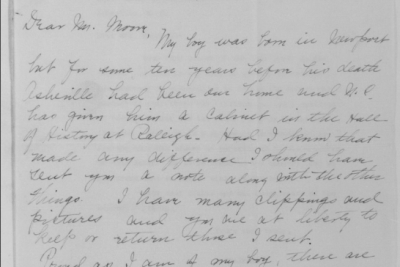 Dear Mr. Moore,
My boy was born in Newport
but for some ten years before his death
Asheville had been our home and N.C.
has given him a cabinet in the Hall
of History at Raleigh. Had I known that
made any difference I should have
sent you a note along with the other
things. I have many clippings and
pictures and you are at liberty to
keep or return those I sent.
Proud as I am of my boy, there are